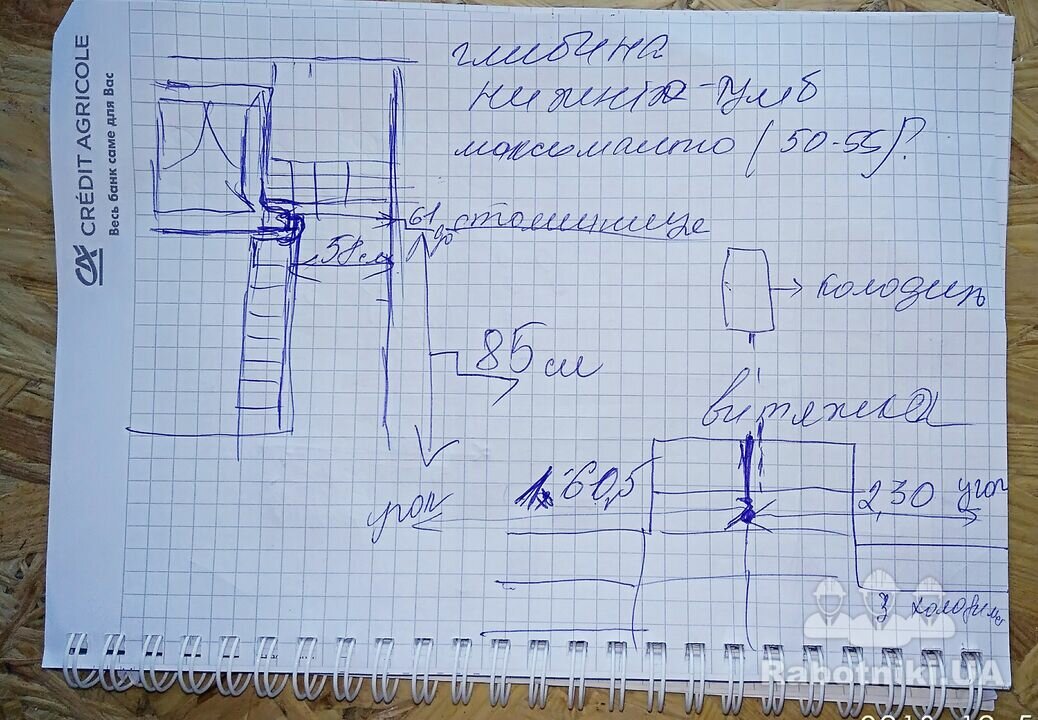 CRÉDIT AGRICOLE
Весь банк саме для Вас
глибина
нижніх тумб
максомально (50-55)?
61
до стольниці
58 см
85 см
колодизь
витяжка
1.60,5
2,30 угол
угол
З холодиль
Rabotniki.UA